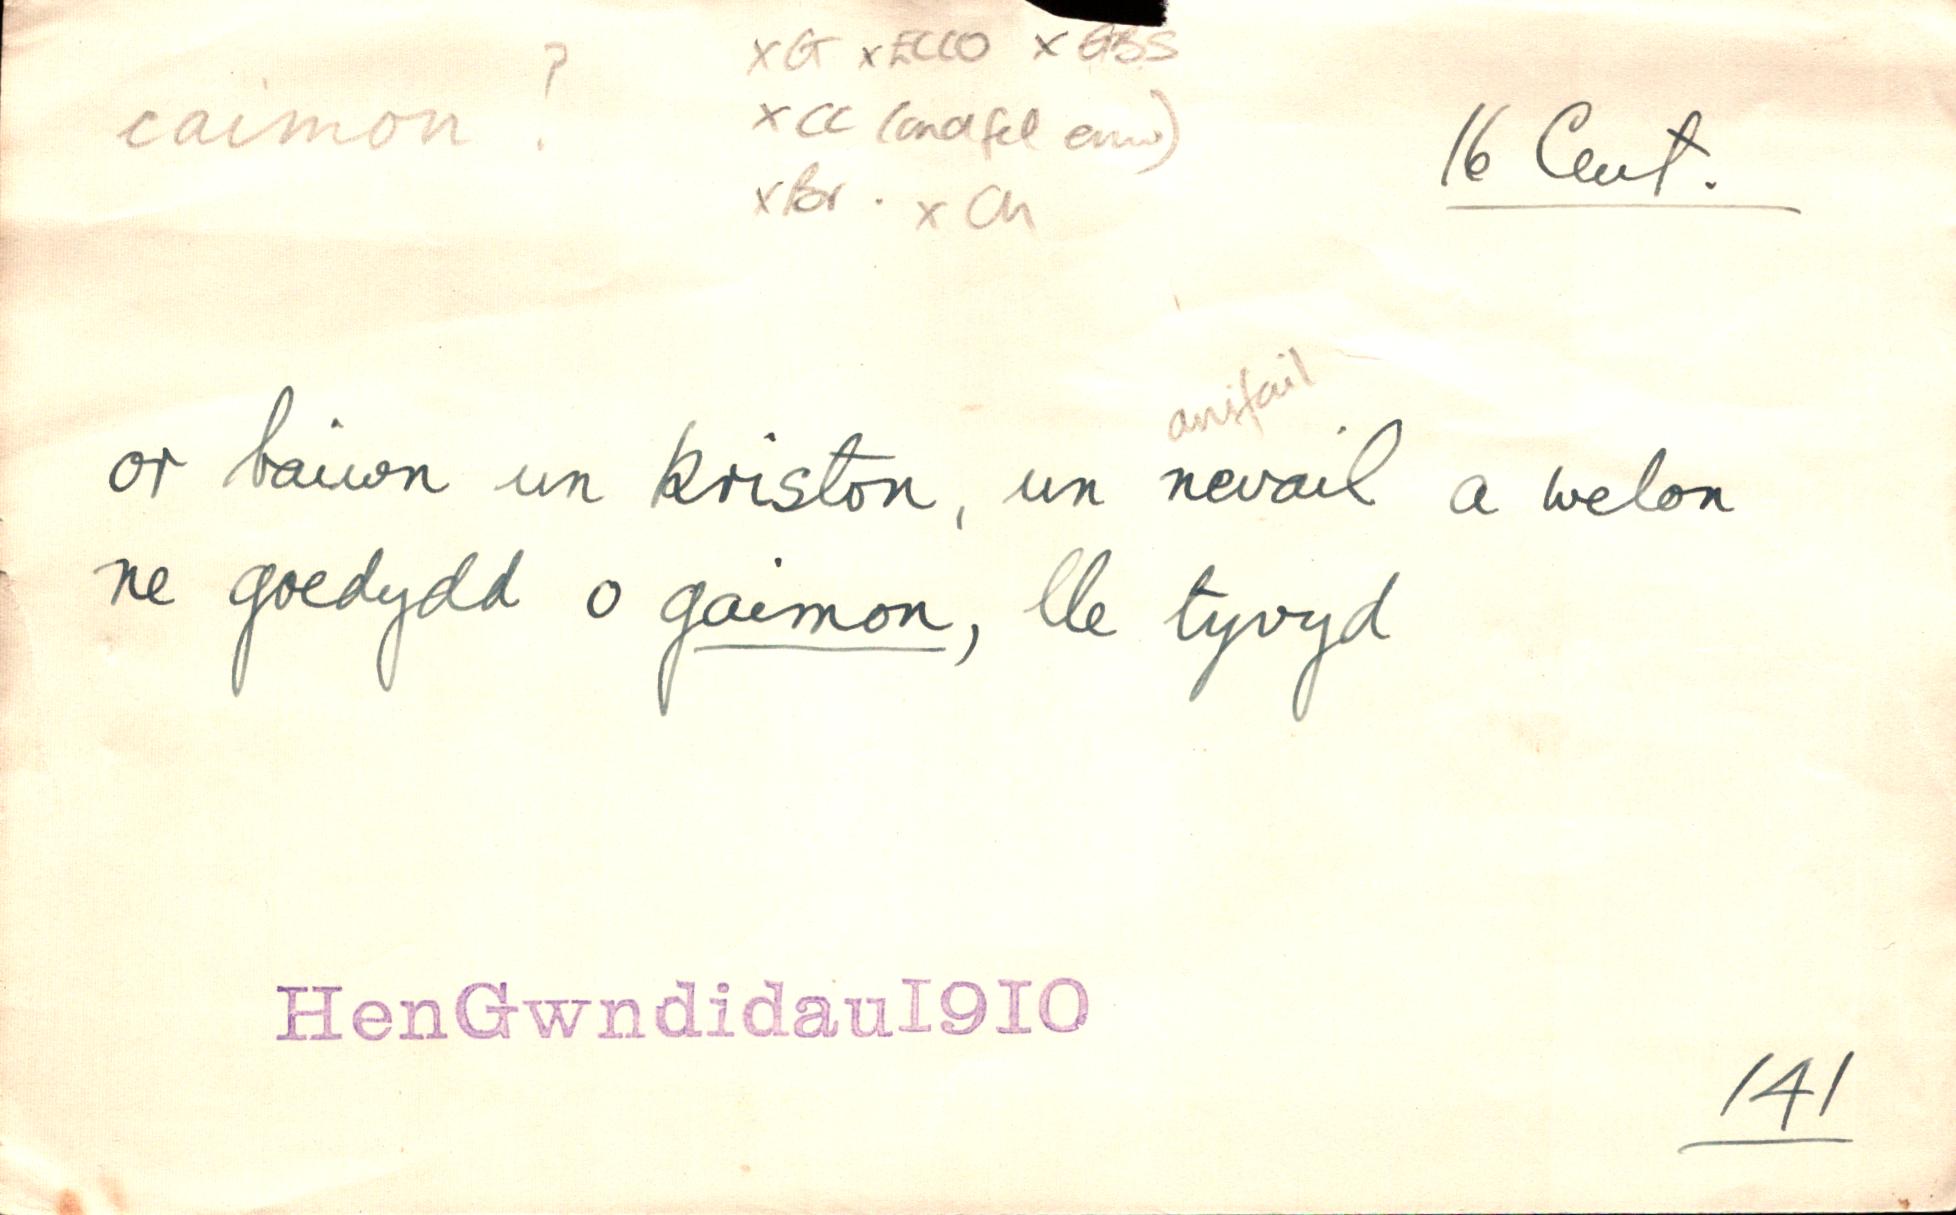 caimon ?
x G x ECCO x GBS
x CC (ond fel enw)
x Br . x Ch
16 Cent.
anifail
or baiwn un kriston, un nevail a welon
ne goedydd o gaimon, lle tyvyd
HenGwndidau1910
141